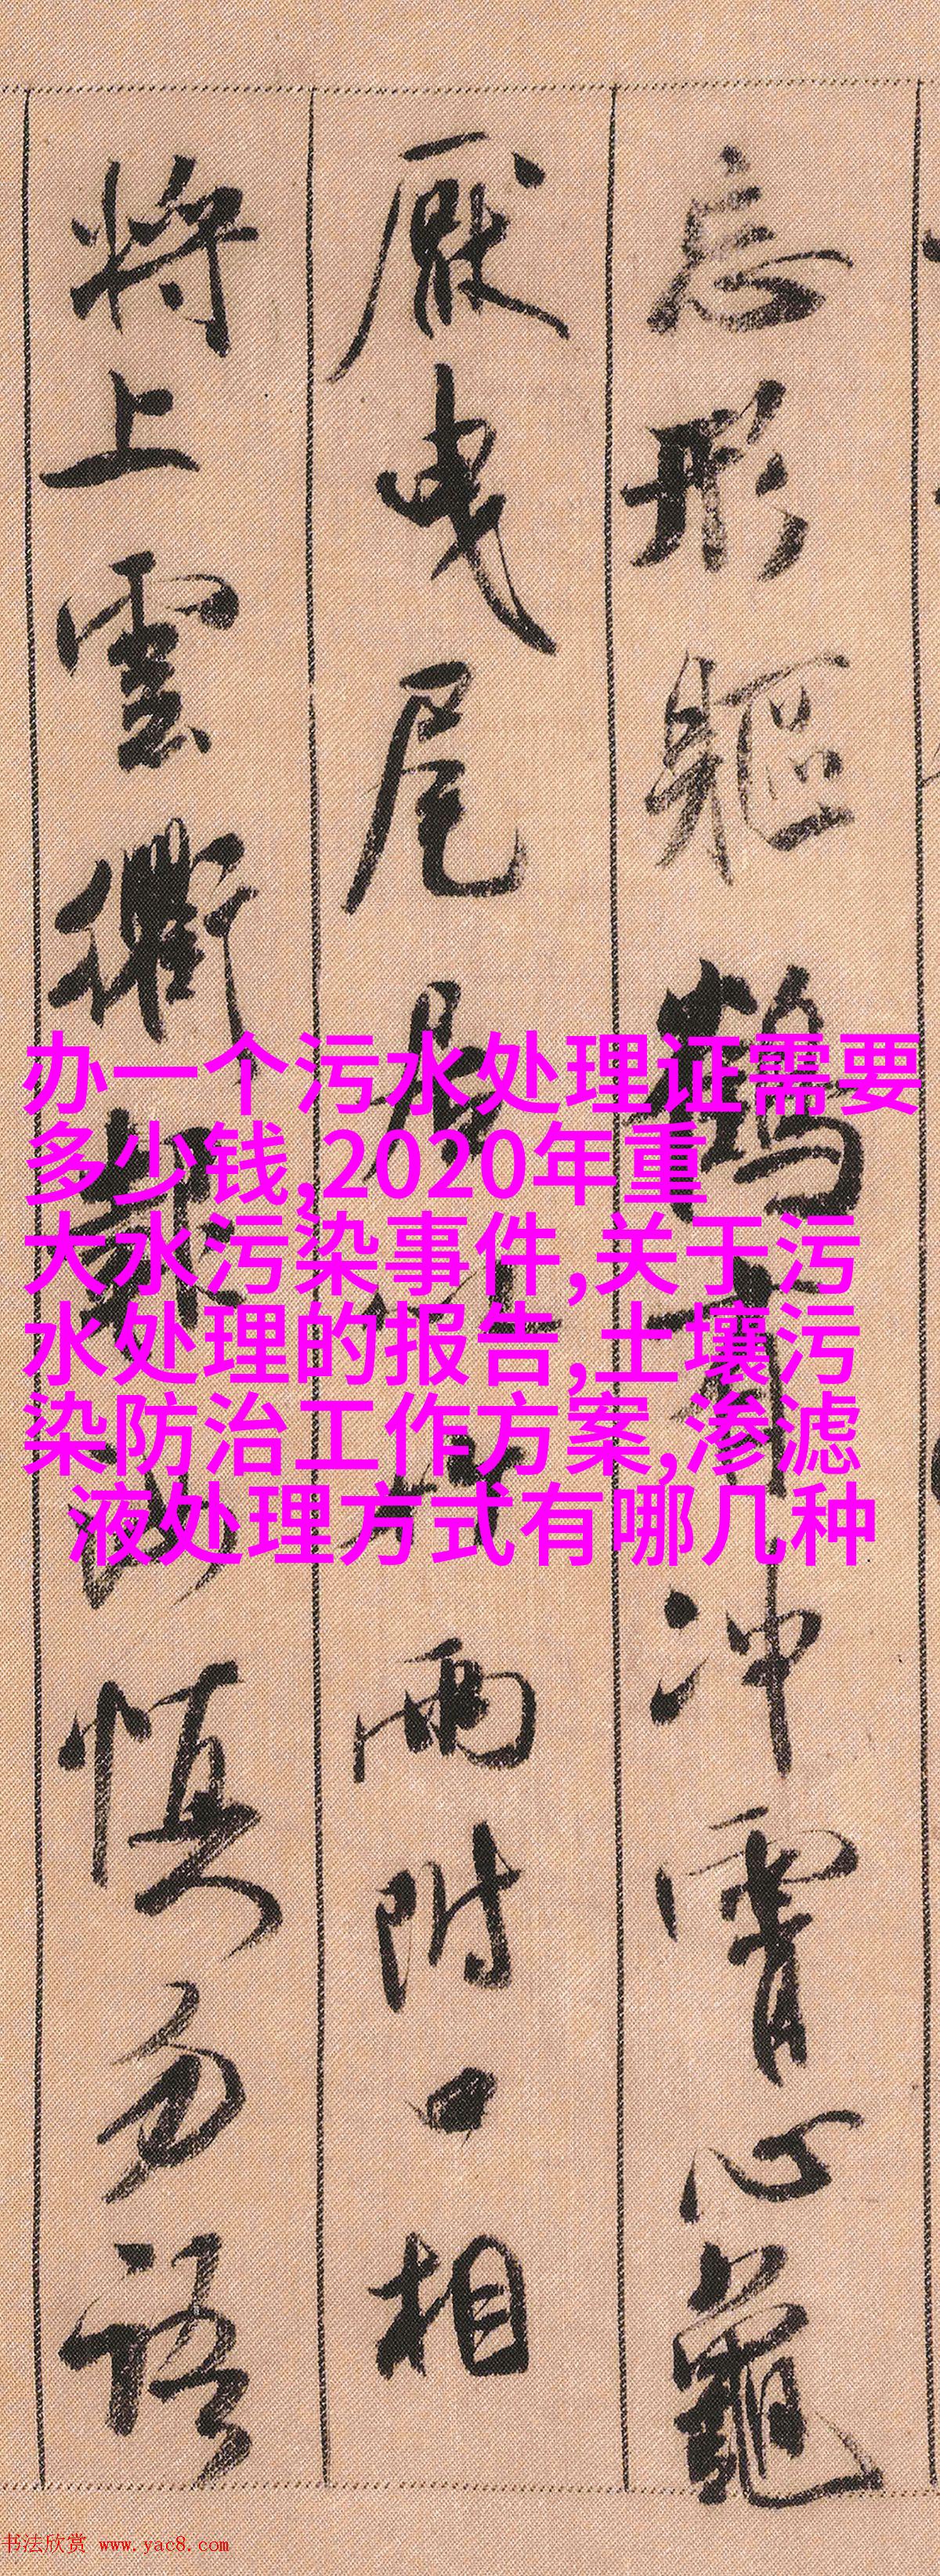 忘形軀鶴有冲霄心龜
厭曳尾居以竹兩附口相
將上雲衢報汝慎勿語
办一个污水处理证需要
多少钱,2020年重
大水污染事件,关于污
水处理的报告,土壤污
染防治工作方案,渗滤
液处理方式有哪几种
书法欣赏 www.yac8.com